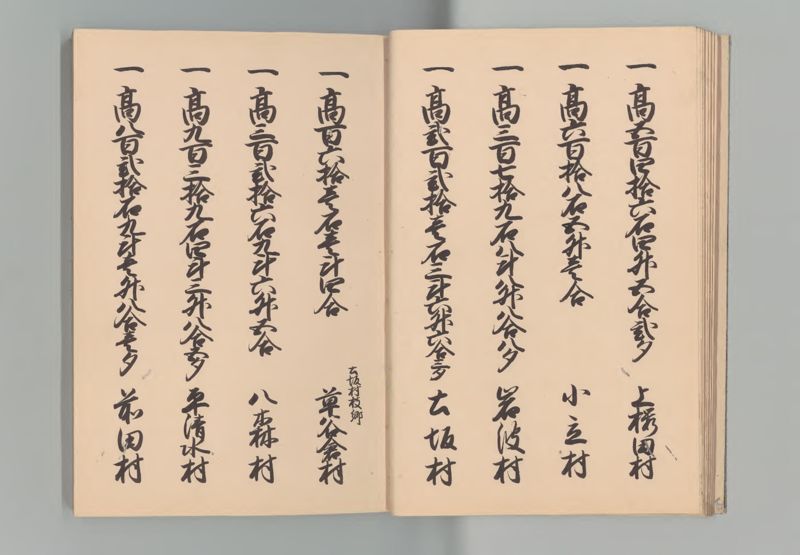 一 高五百四拾六石四升五合弐夕 上桜田村
一 高六百拾八石五升壱合 小立村
一 高三百七拾九石八斗八升八合八夕 岩波村
一 高弐百弐拾壱石三斗六升六合三夕 土坂村
土坂村枝郷
一 高百六拾壱石壱斗四合 草谷倉村
一 高三百弐拾六石九斗六升五合 八森村
一 高九百三拾九石四斗三升八合五夕 平清水村
一 高八百弐拾石九斗壱升八合壱夕 前田村